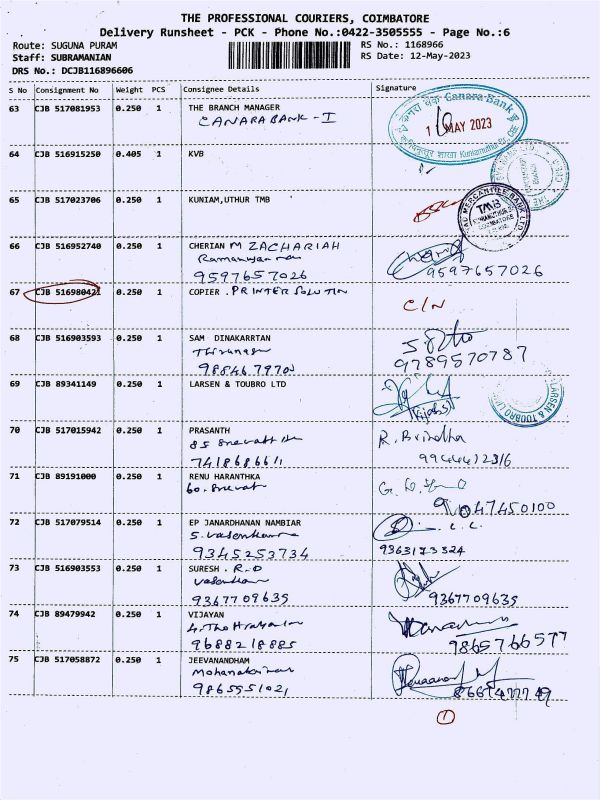 THE PROFESSIONAL COURIERS, COIMBATORE
Delivery Runsheet - PCK - Phone No.:0422-3505555 - Page No.:6
Route: SUGUNA PURAM
RS No.: 1168966
Staff: SUBRAMANIAN
RS Date: 12-May-2023
DRS No.: DCJB116896606
S No Consignment No Weight PCS Consignee Details Signature
63 CJB 517081953 0.250 1 THE BRANCH MANAGER
CANARA BANK - I
Canara Bank
MAY 2023
64 CJB 516915250 0.405 1 KVB
65 CJB 517023706 0.250 1 KUNIAM,UTHUR TMB
TMB
66 CJB 516952740 0.250 1 CHERIAN M ZACHARIAH
9597657026
9597657026
67 CJB 516980421 0.250 1 COPIER . PRINTER SOLUTIN
C/N
68 CJB 516903593 0.250 1 SAM DINAKARRTAN
9789570787
69 CJB 89341149 0.250 1 LARSEN & TOUBRO LTD
LARSEN & TOUBRO
70 CJB 517015942 0.250 1 PRASANTH
R. Brindha
7418686611
71 CJB 89191000 0.250 1 RENU HARANTHKA
9047450100
72 CJB 517079514 0.250 1 EP JANARDHANAN NAMBIAR
9345253734
9363173324
73 CJB 516903553 0.250 1 SURESH . R.O
9367709635
9367709635
74 CJB 89479942 0.250 1 VIJAYAN
9688218885
9865766577
75 CJB 517058872 0.250 1 JEEVANANDHAM
9865551021
1